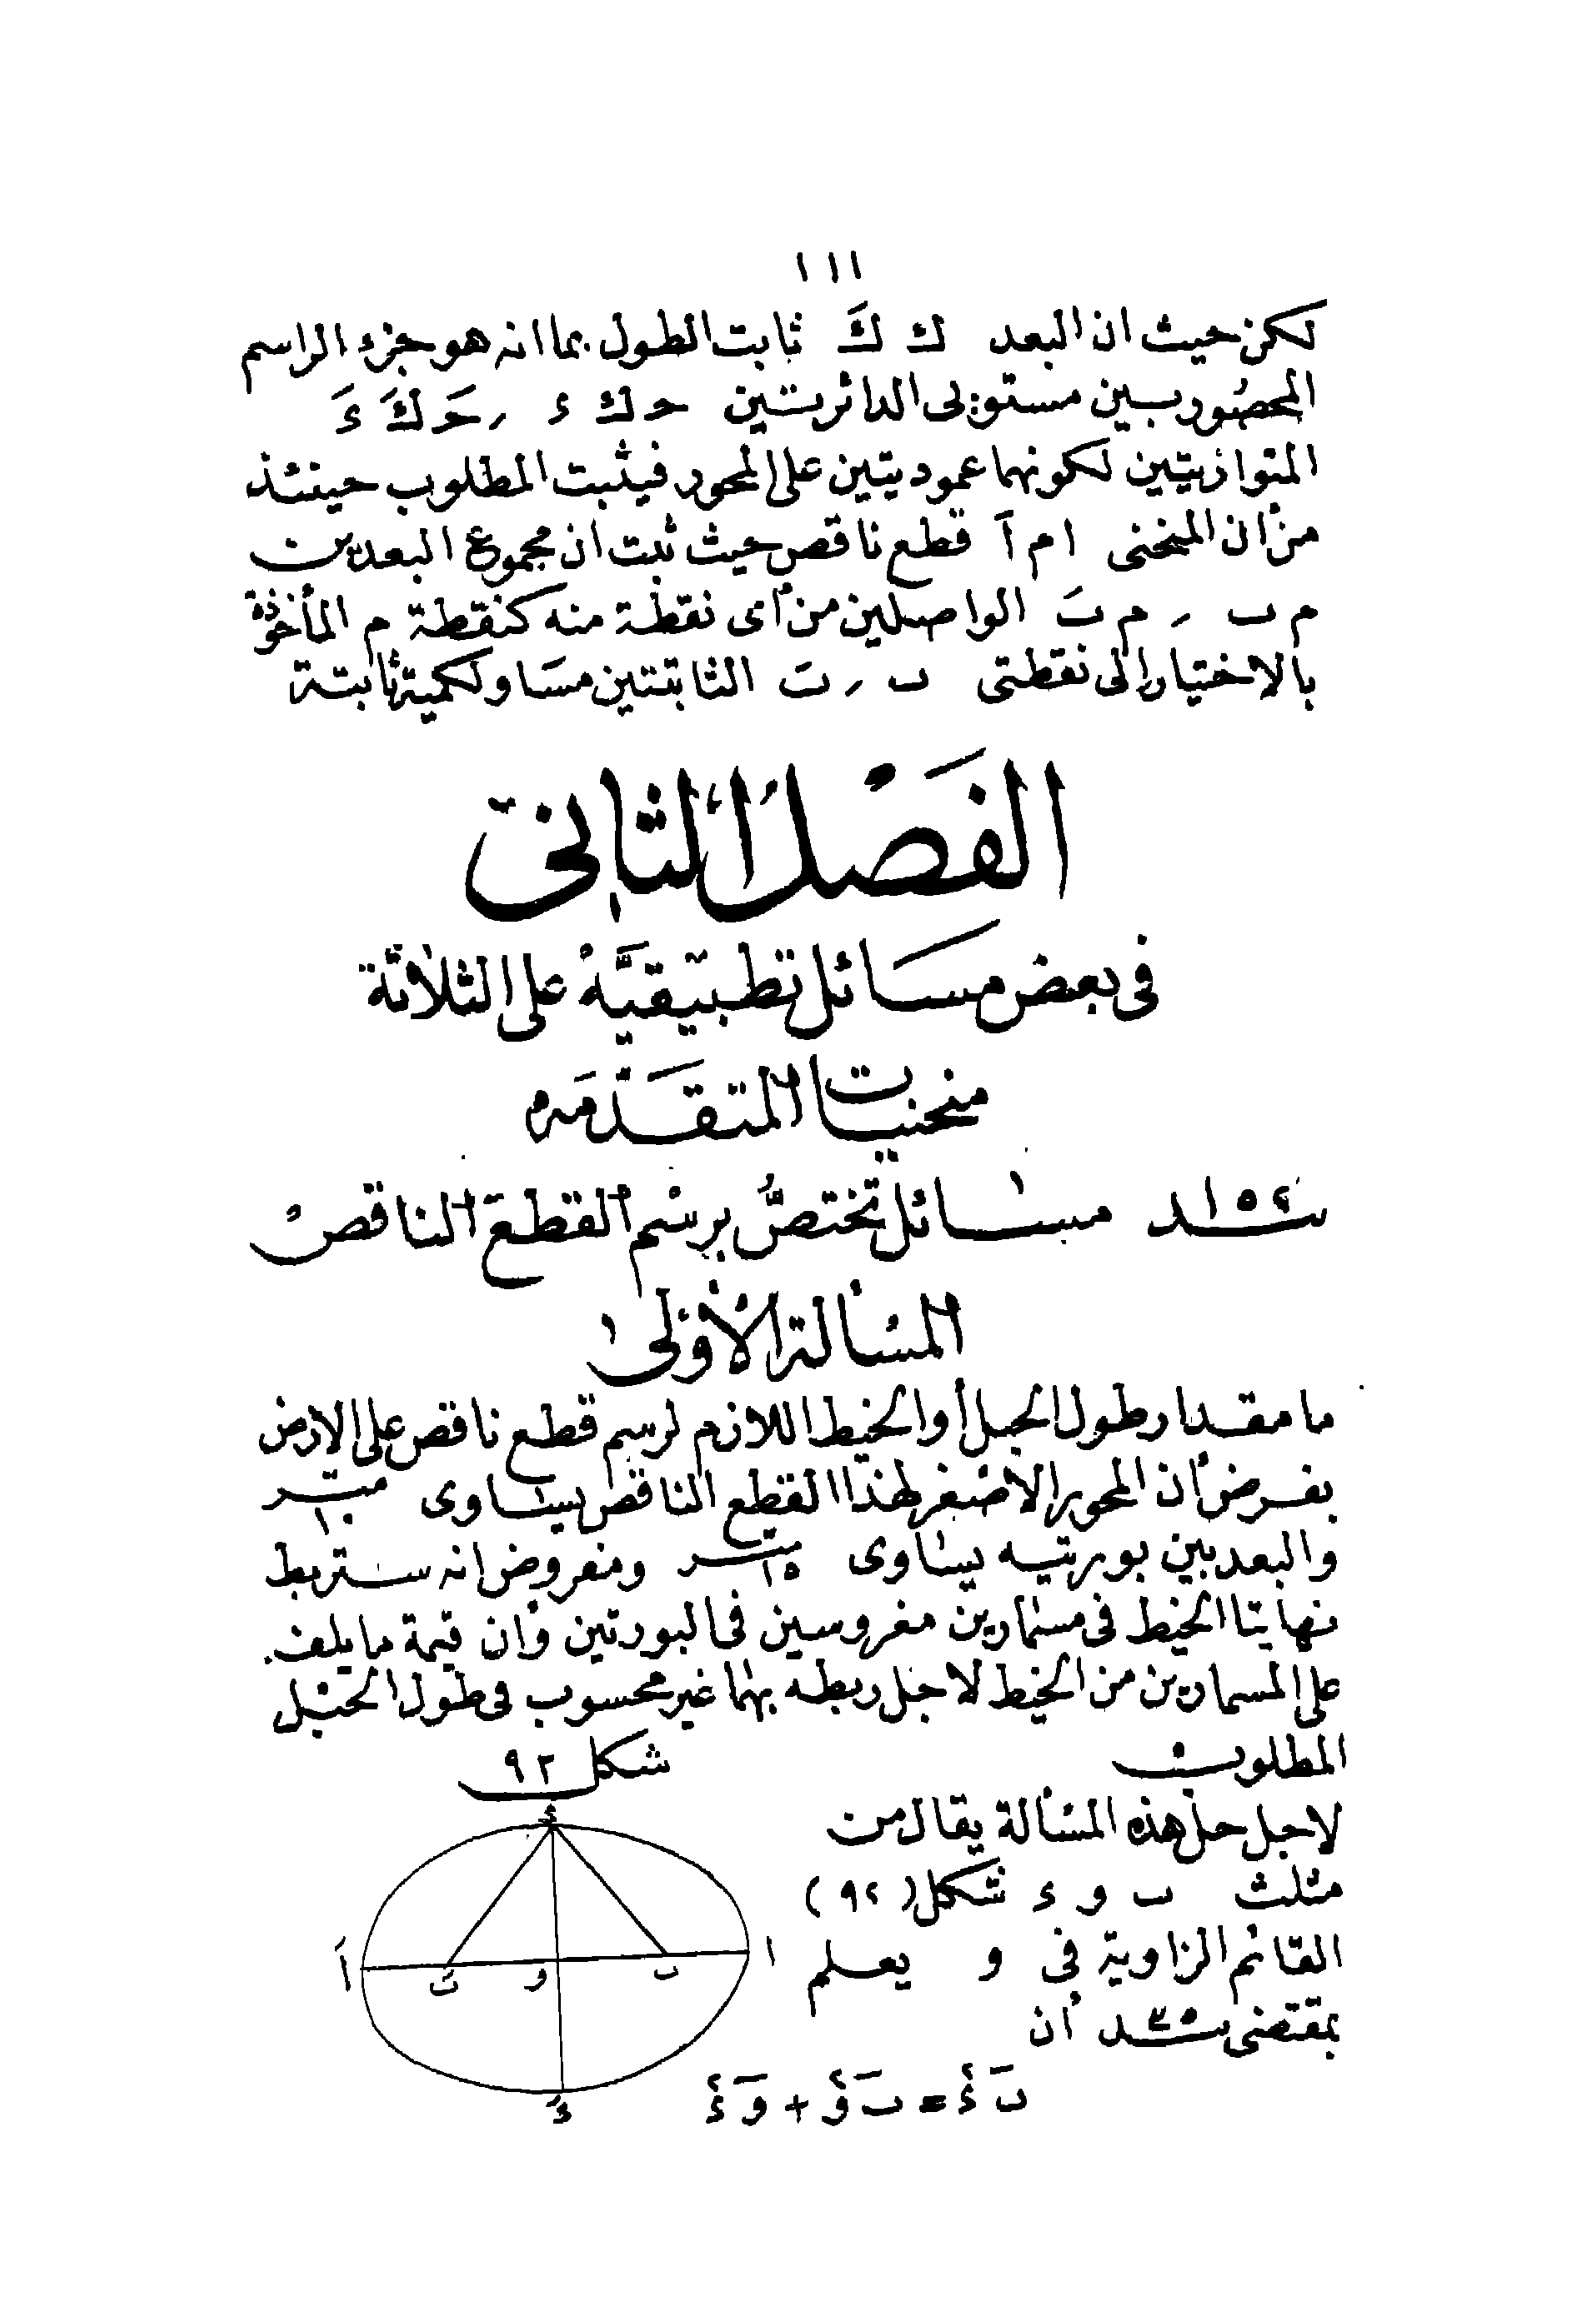 ١١١
لكن حيث ان البعد ك كَ ثابت الطول بما انه هو جزء الراسم
المحصور بين مستويى الدائرتين حـ ك ء ر حـَ كَ ءَ
المتوازيتين لكونهما عموديتين على المحور فيثبت المطلوب حينئذ
من أن المنحنى ا م اَ قطع ناقص حيث ثبت ان مجموع البعدين
م ب ر م بَ الواصلين من أى نقطة منه كنقطة م المأخوذة
بالاختيار الى نقطتى ب ر بَ الثابتتين مساو لكمية ثابتة
الفصل الثانى
فى بعض مسائل تطبيقية على الثلاثة
منحنيات المتقدمه
١٥٤ــند مسائل تختص برسم القطع الناقص
المسألة الأولى
ما مقدار طول الحبل أو الخيط اللازم لرسم قطع ناقص على الارض
بفرض أن المحور الاصغر لهذا القطع الناقص يساوى ١٠ متر
والبعد بين بورتيه يساوى ١٥ متر ومفروض انه ستربط
نهايتا الخيط فى مسمارين مغروسين فى البورتين وأن قيمة ما يلف
على المسمارين من الخيط لاجل ربطه بهما غير محسوب فى طول الحبل
المطلوب
شكل ٩٢
لاجل حل هذه المسألة يقال من
مثلث ب و ء شكل (٩٢)
القائم الزاوية فى و يعلم
بمقتضى بند ٣٥ أن
بَ ءَ٢ = بَ وَ٢ + وَ ءَ٢
ء
اَ بَ و ب ا
ءَ